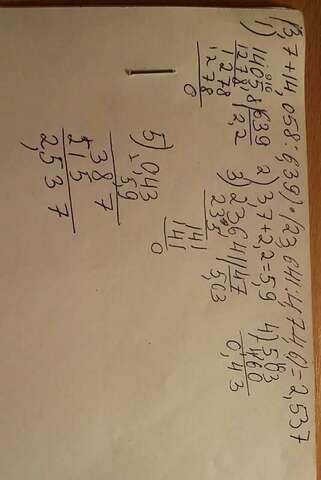 (3,7+14,058:6,39)·(23,641:4,7-4,6)=2,537
1) 14058|639
1278|2,2
1278
1278
0
2) 3,7+2,2=5,9
3) 23641|47
235 |5,03
141
141
0
4) 5,03
4,60
0,43
5) 0,43
× 5,9
387
+215
2,537